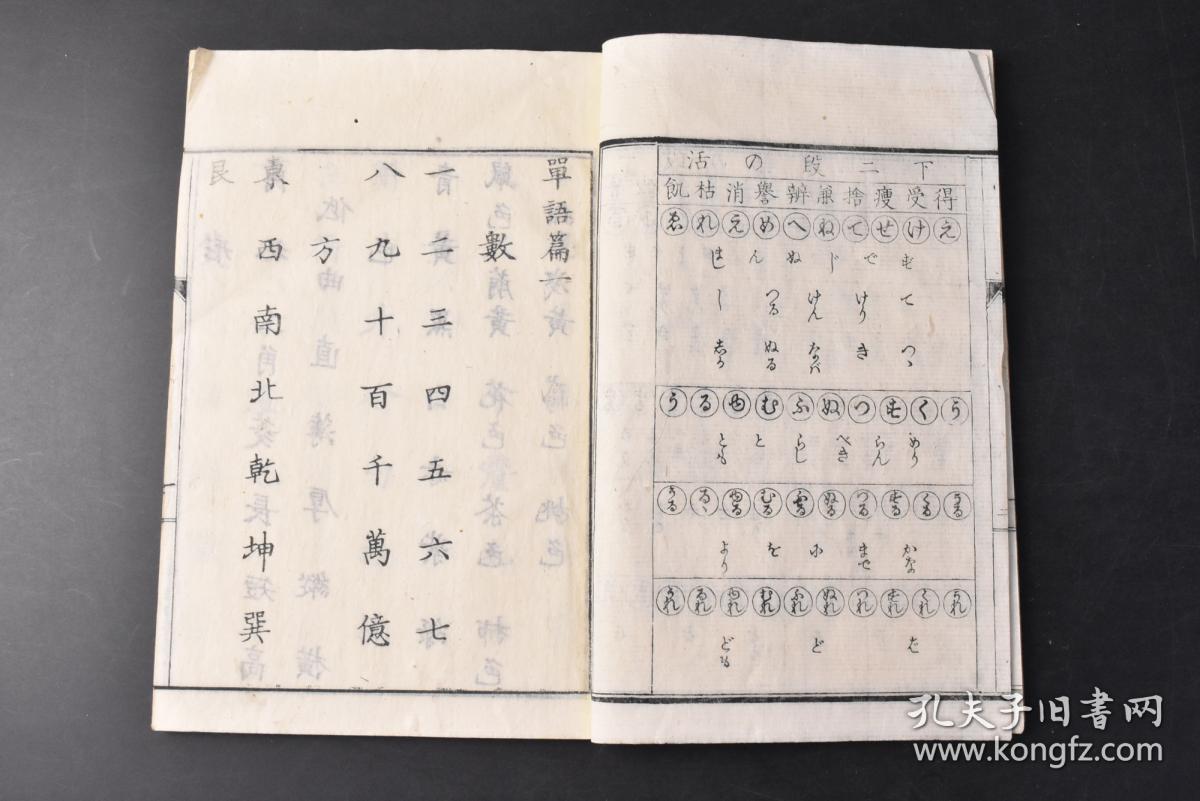 下二段の活
得受瘦捨兼辨譽消枯飢
えけせてねへめえれゑ
すでじぬんまし
てけりけんつるし
つゝきなべぬるましを
うくすつぬふむゆるう
めりらんべきらしととも
うるくるするつるぬるふるむるゆるるゝうる
かなまでにをより
うれくれすれつれぬれふれむれゆれるれうれ
ばどども
單語篇一
數
一二三四五六七
八九十百千萬億
方
東西南北乾坤巽
艮
孔夫子旧書网
www.kongfz.com